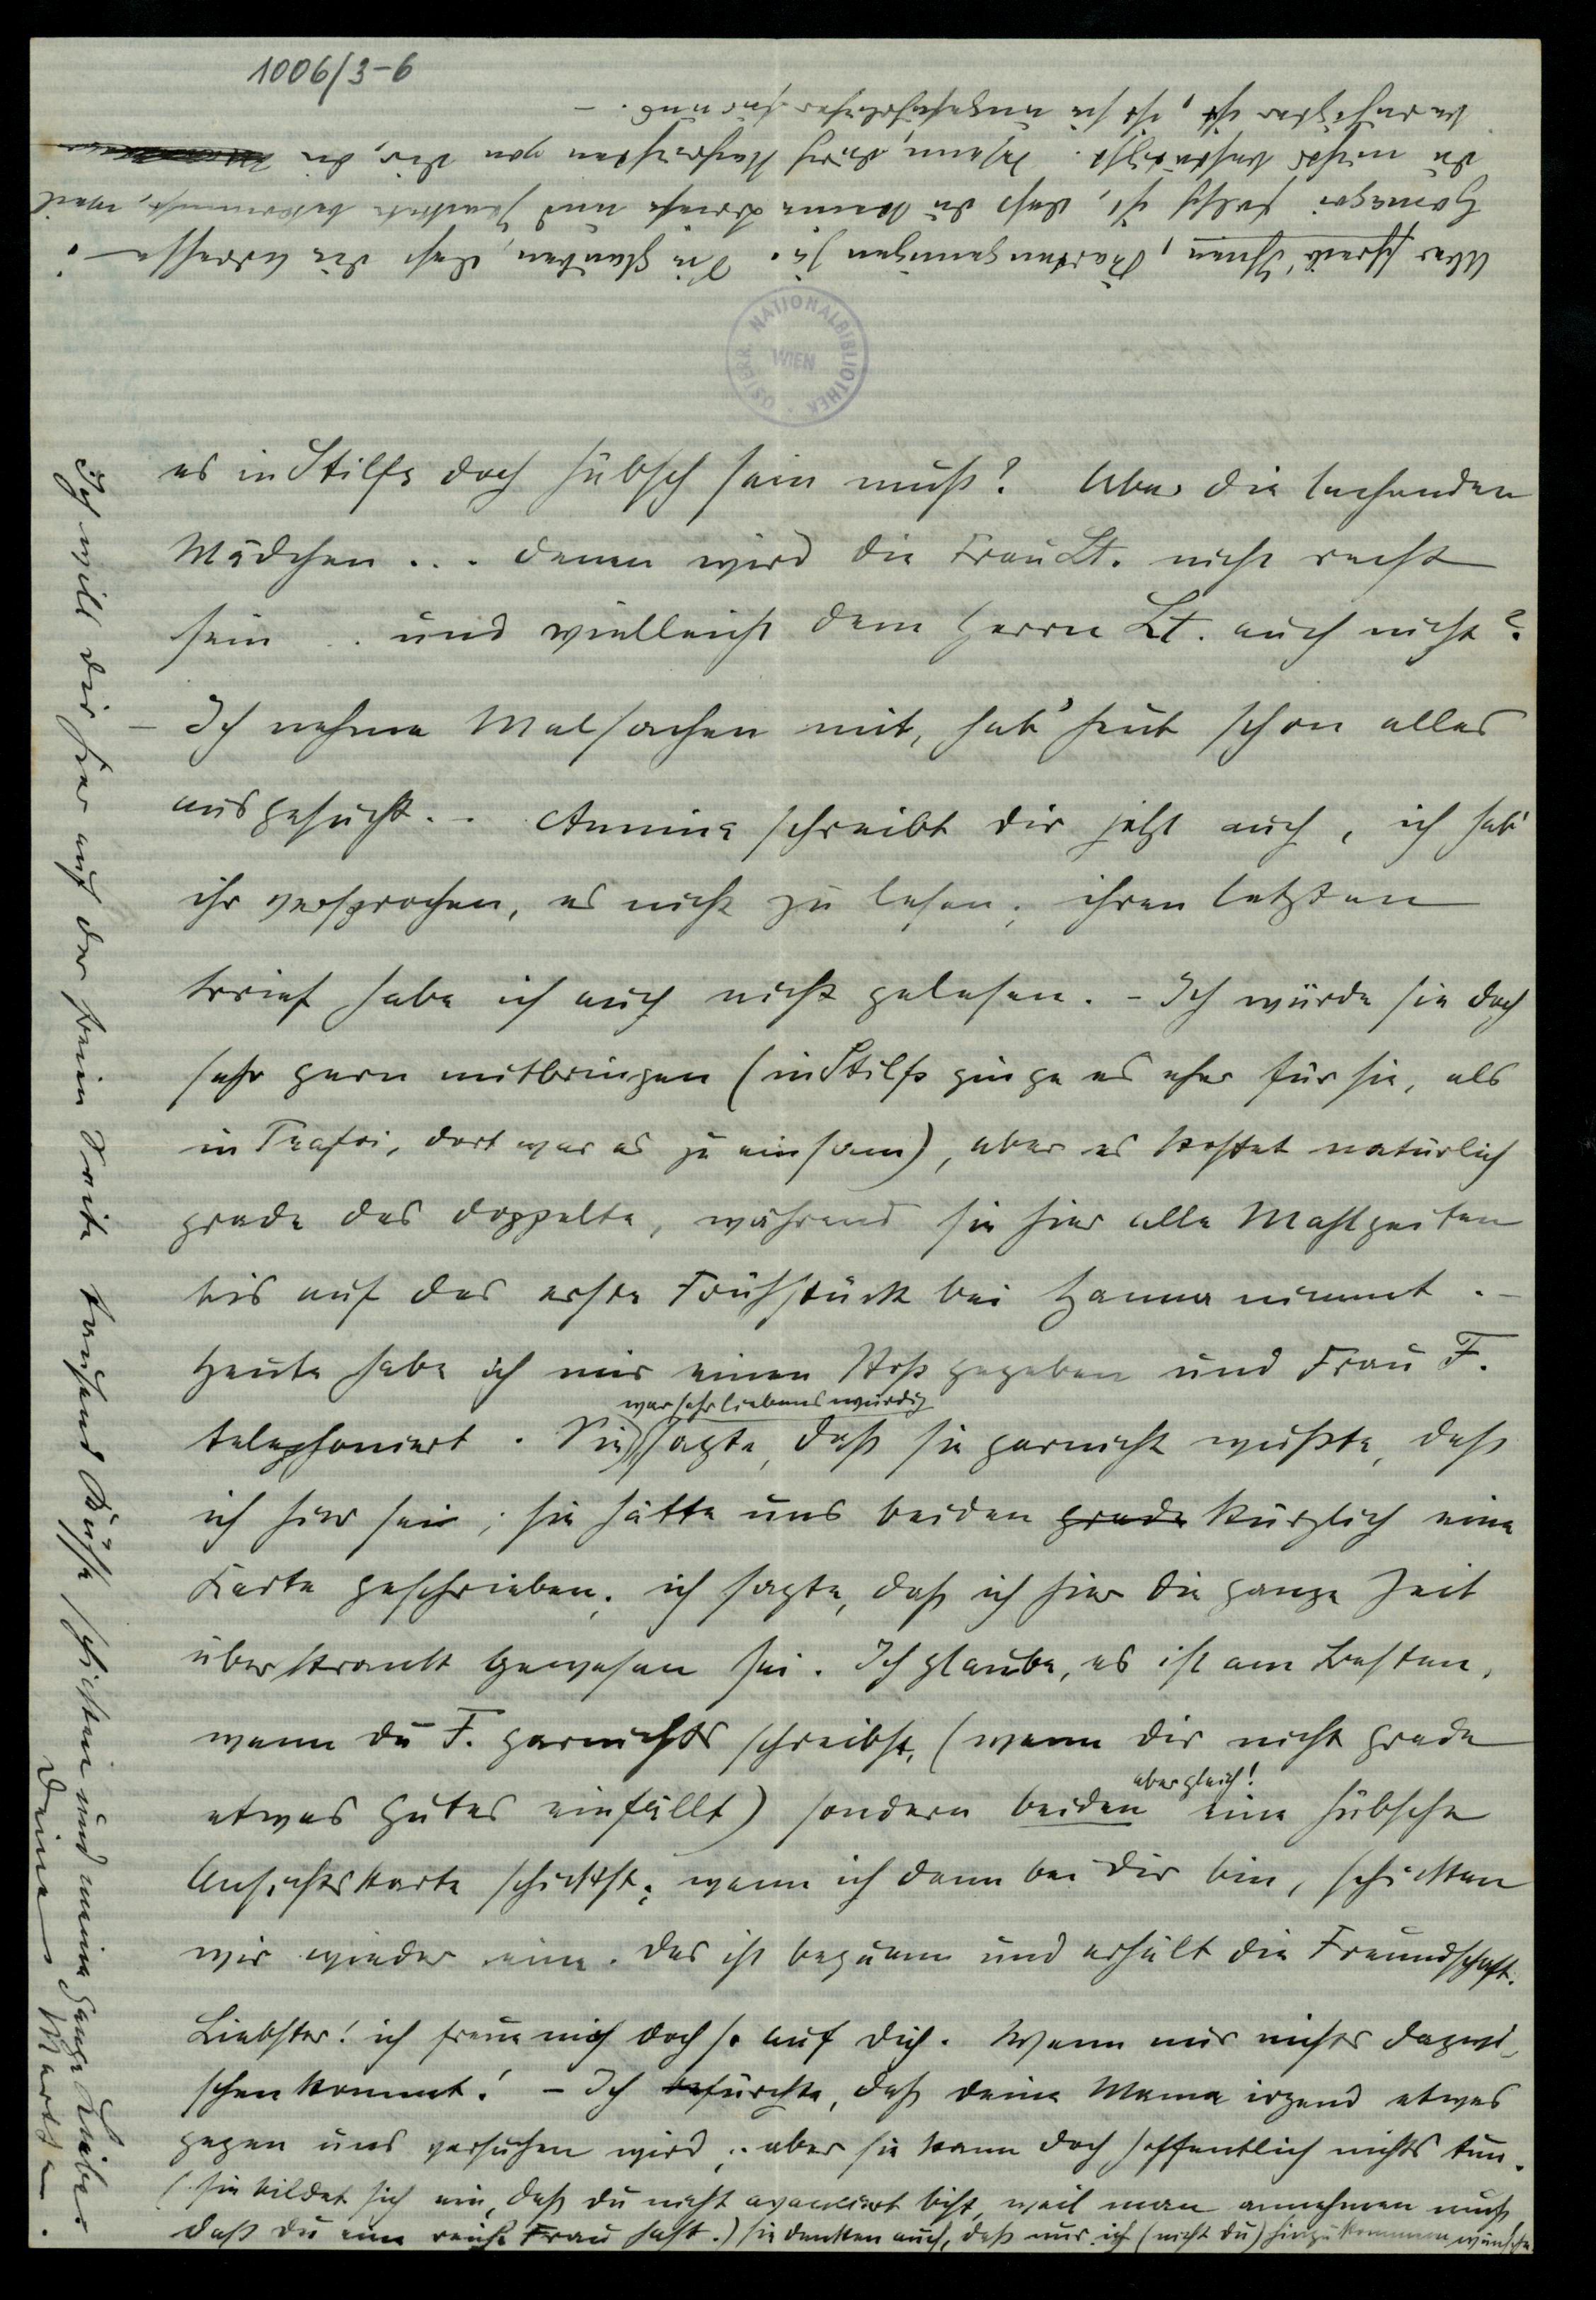 1006/3-6
es in Stilfs doch hübsch sein muß? Aber die lachenden
Mädchen... denen wird die Frau Lt. nicht recht
sein .. und vielleicht dem Herrn Lt. auch nicht?
– Ich nehme Malsachen mit, hab' heut schon alles
ausgesucht. – Annina schreibt dir jetzt auch, ich hab'
ihr versprochen, es nicht zu lesen; ihren letzten
Brief habe ich auch nicht gelesen. – Ich würde sie doch
sehr gern mitbringen (in Stilfs ginge es eher für sie, als
in Trafoi, dort war es zu einsam), aber es kostet natürlich
grade das doppelte, während sie hier alle Mahlzeiten
bis auf das erste Frühstück bei Hanna nimmt. –
Heute habe ich mir einen Stoß gegeben und Frau F.
war sehr liebenswürdig
telephoniert. Sie sagte, daß sie garnicht wußte, daß
ich hier sei; sie hätte uns beiden grade kürzlich eine
Karte geschrieben; ich sagte, daß ich hier die ganze Zeit
über krank gewesen sei. Ich glaube, es ist am Besten,
wenn du F. garnichts schreibst, (wenn dir nicht grade
aber gleich!
etwas gutes einfällt) sondern beiden eine hübsche
Ansichtskarte schickst; wenn ich dann bei dir bin, schicken
wir wieder eine. Das ist bequem und erhält die Freundschaft.
Liebster! ich freue mich doch so auf dich. Wenn nur nichts dazwi-
schen kommt! – Ich befürchte, daß deine Mama irgend etwas
gegen uns versuchen wird; aber sie kann doch hoffentlich nichts tun.
(Sie bildet sich ein, daß du nicht avanciert bist, weil man annehmen muß
daß du eine reiche Frau hast.) Sie denken auch, daß nur ich (nicht du) hinzukommen wünsche.
Ich will dir hier auf der Seite tausend Küsse schicken und meine ganze Liebe.
Deine Martha.
Aber schreib' Ihnen, Karten genügen ja. Sie glauben, daß die Adresse
Gomagoi falsch ist, daß du keine Briefe und Pakete bekommst, weil
du nichts bestätigst. Johanna, durch Nachrichten von dir, die
beruhigter ist, ist sie ungefährlicher für uns. –
ÖSTERR. NATIONALBIBLIOTHEK WIEN